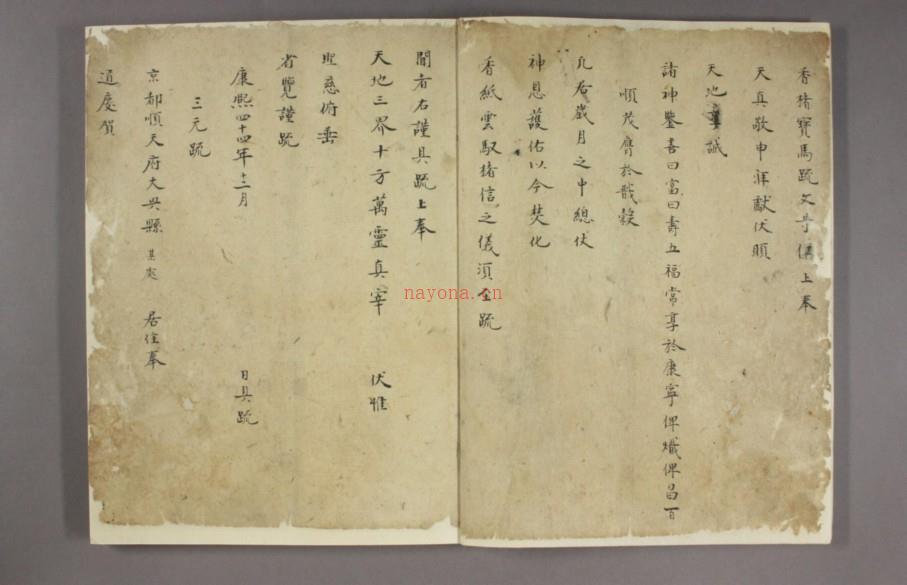 香楮寶馬疏文寸備上奉
天真敬申洋獻伏願
天地誠
諸神鑒喜曰富曰壽五福常享於康寧俾熾俾昌百
順茂膺於戩穀
凡居歲月之中總伏
神恩護佑以今焚化
香紙雲馭楮信之儀須至疏
聞者右謹具疏上奉
天地三界十方萬靈真宰 伏惟
聖慈俯垂
省覽謹疏
康熙四十四年十二月 日具疏
三元疏
京都順天府大興縣某處 居住奉
道慶賀
nayona.cn